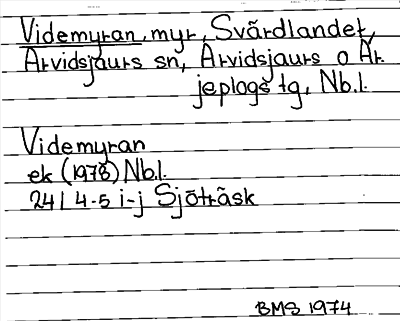 Videmyran, myr, Svärdlandet,
Arvidsjaurs sn, Arvidsjaurs o Ar-
jeplogs tg, Nb.l.
Videmyran
ek (1978) Nb.l.
24I 4-5 i-j Sjöträsk
BMS 1974